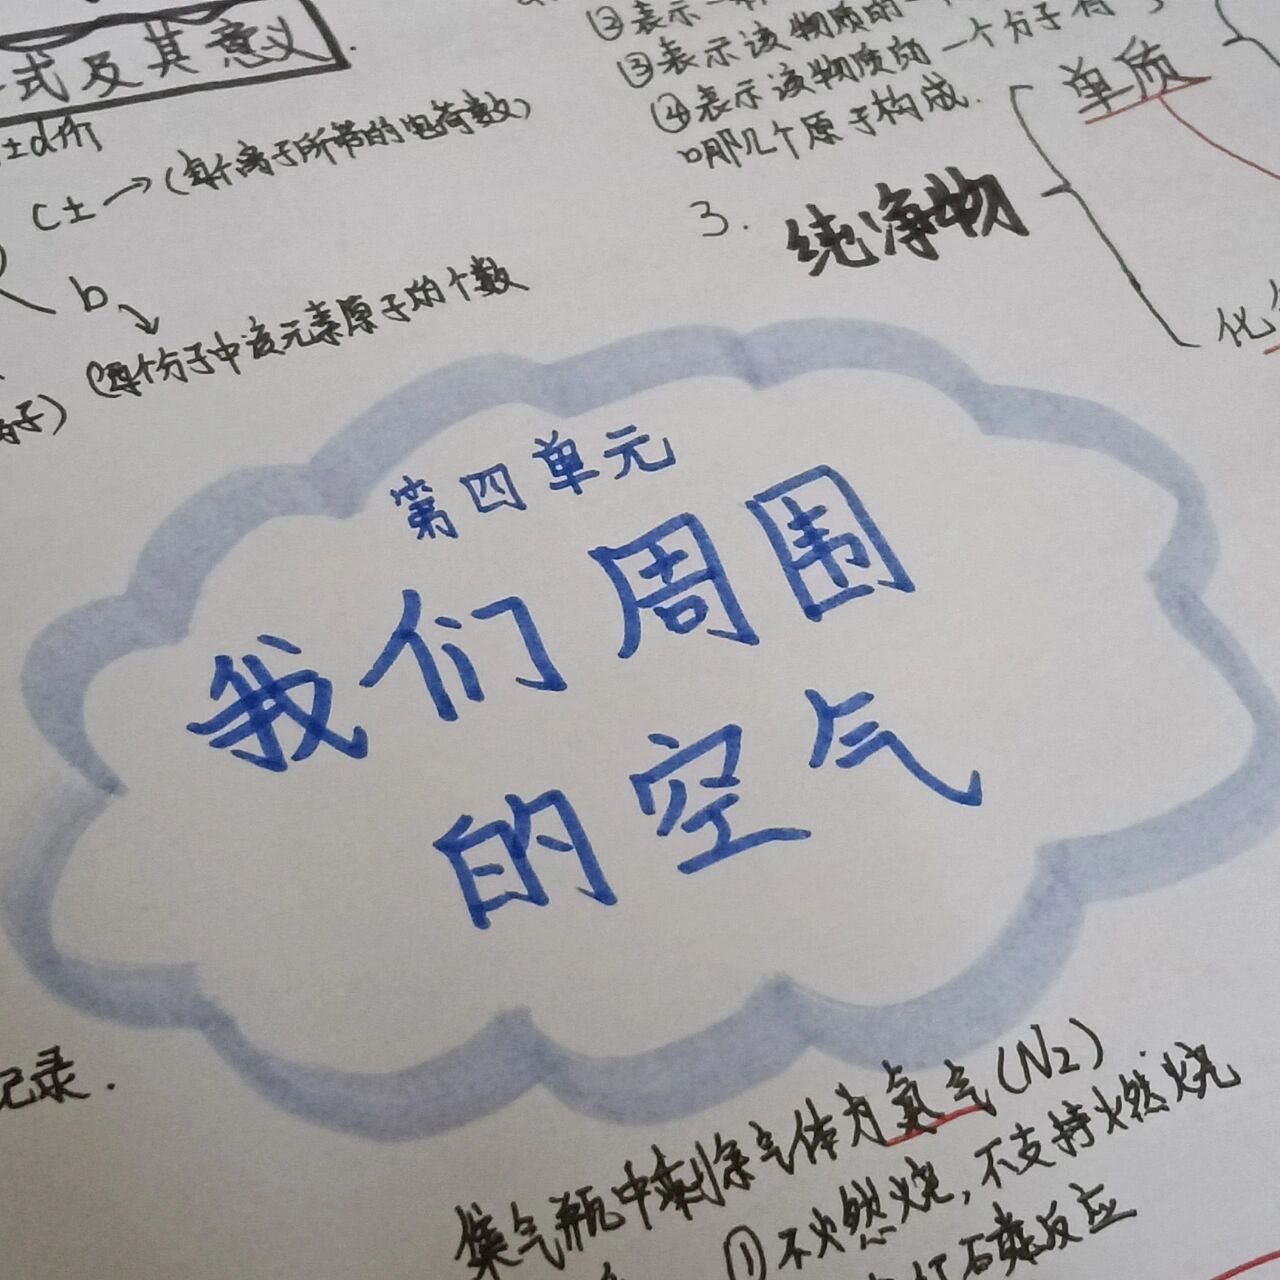 式及其意义
C± →(每个离子所带的电荷数)
b
(每个分子中该元素原子的个数
②表示一
③表示该物质的一
④表示该物质的一个分子有
哪几个原子构成.
3. 纯净物
单质
化
第四单元
我们周围
的空气
记录.
集气瓶中剩余气体为氮气(N2)
①不燃烧,不支持燃烧
红磷反应